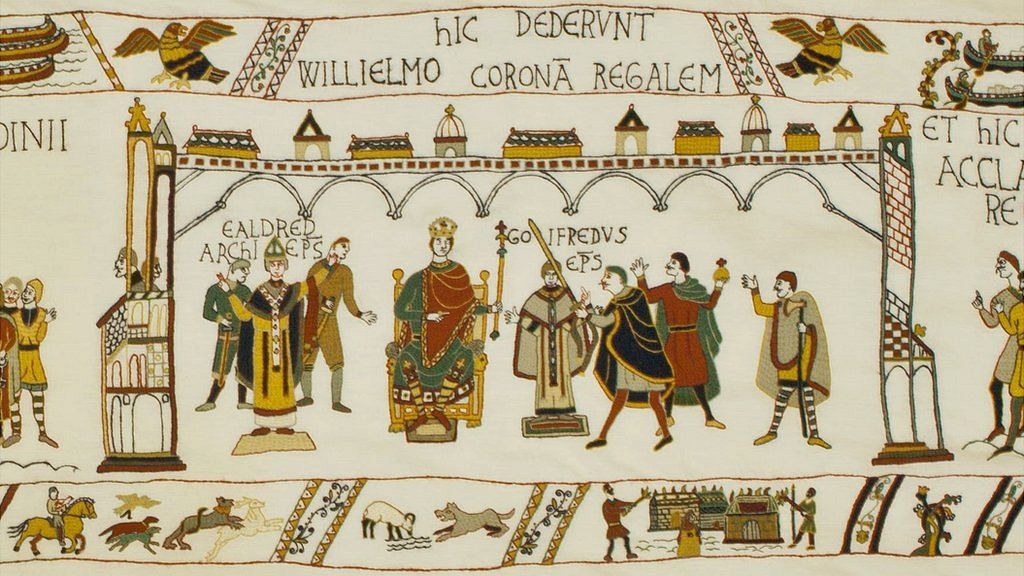 hIC DEDERVNT
WILLIELMO CORONĀ REGALEM
DINII
ET hIC
ACCLA
RE
EALDRED
ARCHI EPS
GO IFREDVS
EPS